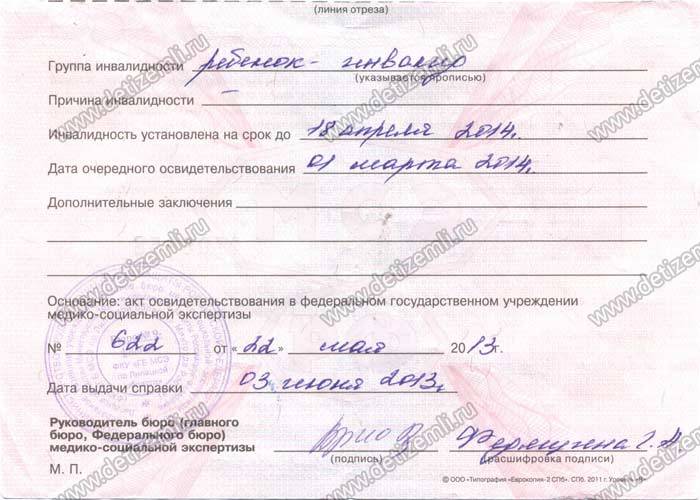 (линия отреза)
Группа инвалидности ребенок - инвалид
(указывается прописью)
Причина инвалидности —
Инвалидность установлена на срок до 18 апреля 2014г.
Дата очередного освидетельствования 01 марта 2014г.
Дополнительные заключения
Основание: акт освидетельствования в федеральном государственном учреждении
медико-социальной экспертизы
№ 622 от «22» мая 2013г.
Дата выдачи справки 03 июня 2013г.
Руководитель бюро (главного
бюро, Федерального бюро)
медико-социальной экспертизы
(подпись) (расшифровка подписи)
М. П.
© ООО «Типография «Еврокопия-2 СПб». СПб. 2011 г. Уровень «В»
www.detizemli.ru